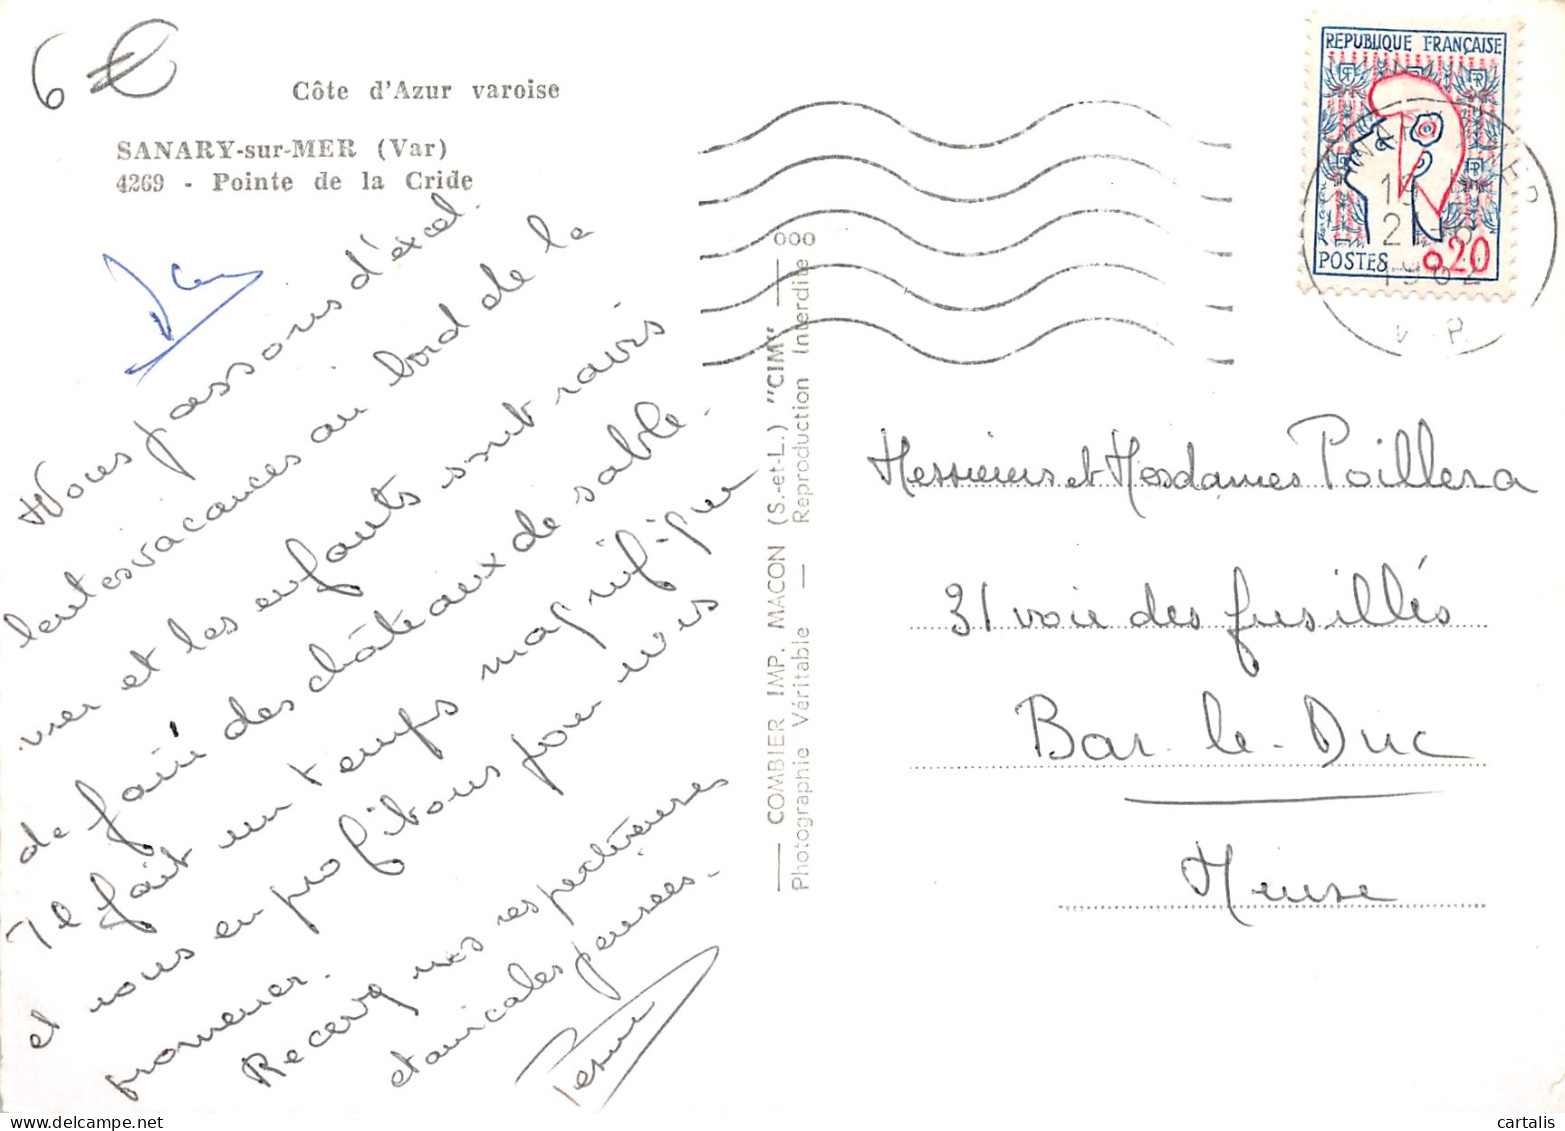 6 €
Côte d'Azur varoise
SANARY-sur-MER (Var)
4269 - Pointe de la Cride
Nous passons d'excel-
lentes vacances au bord de la
mer et les enfants sont ravis
de faire des châteaux de sable.
Il fait un temps magnifique
et nous en profitons pour nous
promener.
Recevez nos respectueuses
et amicales pensées.
COMBIER IMP. MACON (S.-et-L.) "CIM"
Photographie Véritable — Reproduction Interdite
REPUBLIQUE FRANÇAISE
POSTES 0,20
1962
Messieurs et Mesdames Poillera
31 voie des fusillés
Bar-le-Duc
Meuse
cartalis